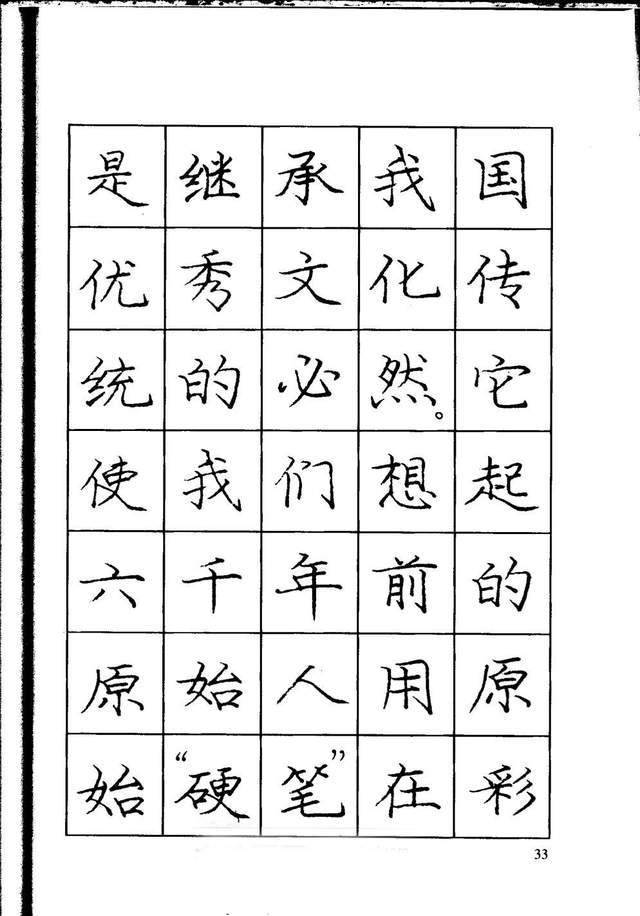 是继承我国
优秀文化传
统的必然。它
使我们想起
六千年前的
原始人用原
始“硬笔”在彩
33